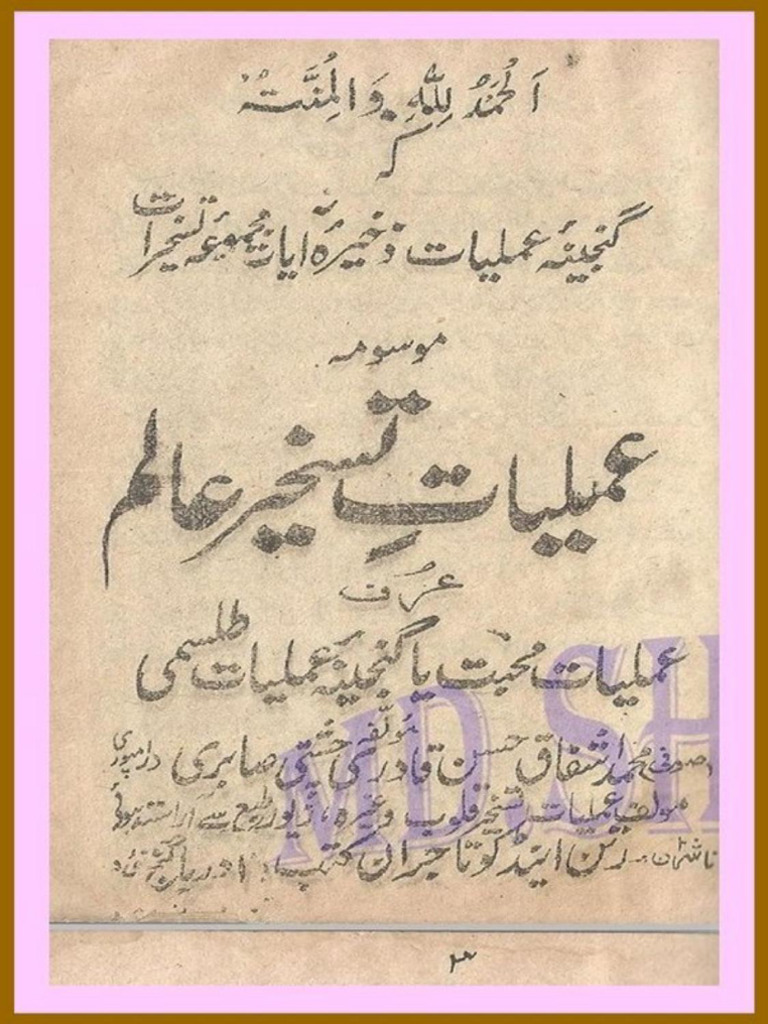 اَلْحَمْدُ لِلّٰہِ وَالْمِنَّتہ
کہ
گنجینۂ عملیات ذخیرۂ ایات مجموعہ تسخیرات
موسومہ
عملیاتِ تسخیر عالم
عُرف
عملیات محبت یا گنجینۂ عملیات طلسمی
مؤلفہ
(صوفی) محمد اشفاق حسن قادری چشتی صابری رامپوری
مولف عملیات تسخیر قلوب وغیرہ، زیور طبع سے آراستہ ہوئی
ناشران۔ رتن اینڈ کو تاجران کتب دریبہ
MD.SH
۳